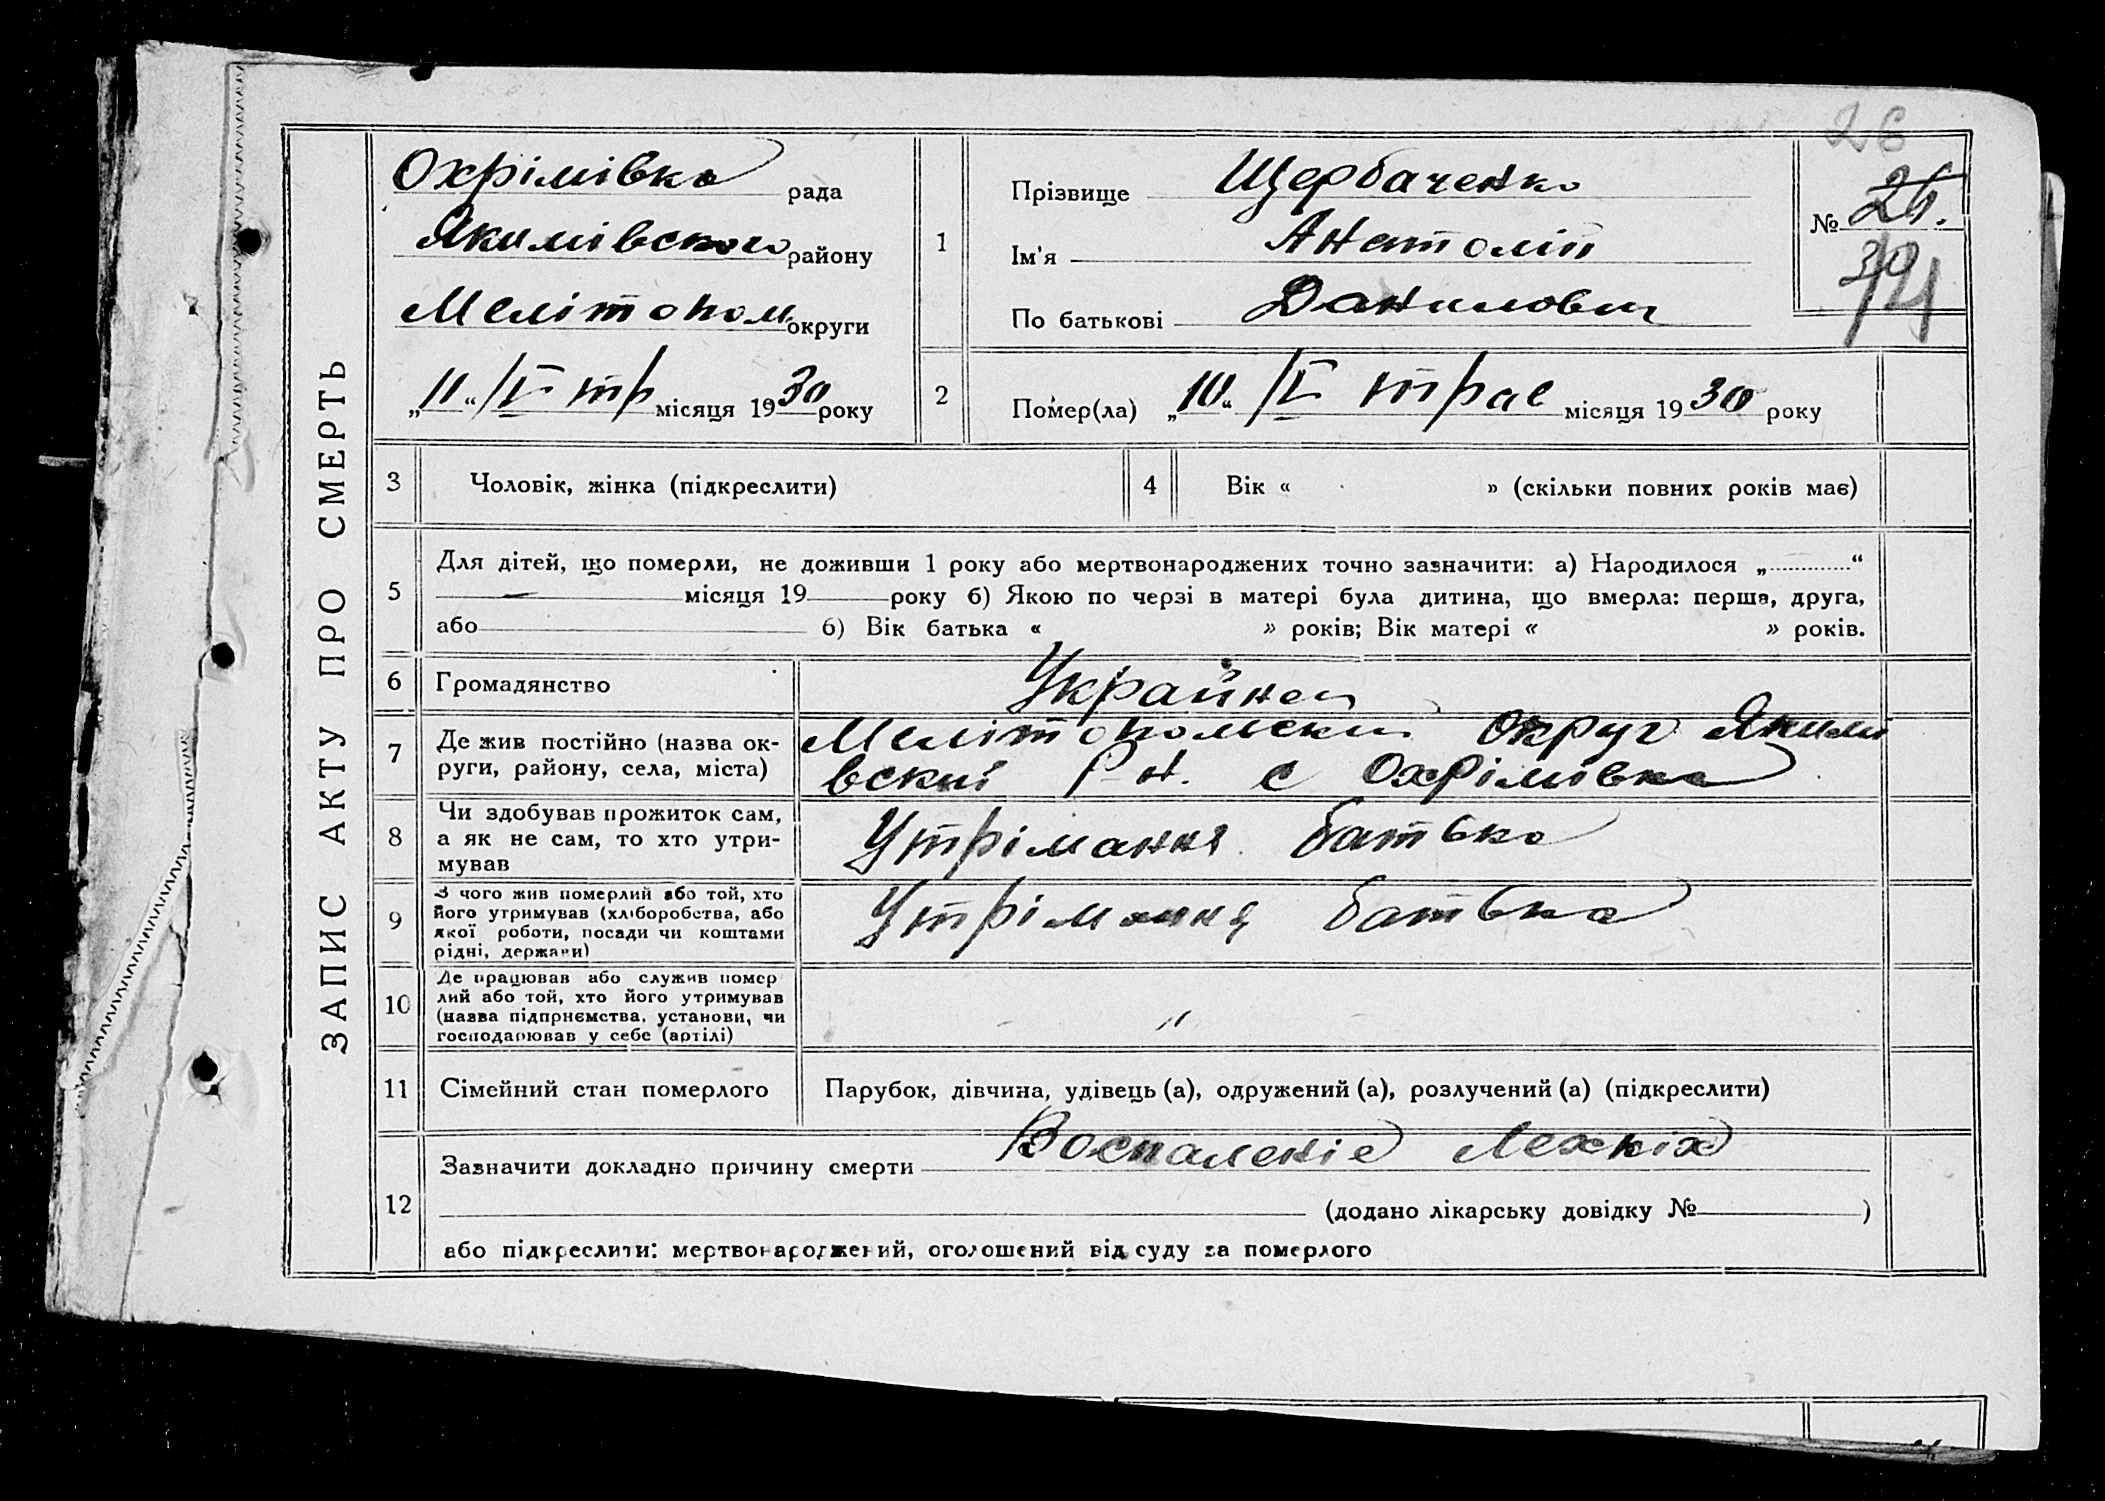 26
ЗАПИС АКТУ ПРО СМЕРТЬ
Охрімівка рада
Якимівского району
Мелітопол округи
„11“ /V тр місяця 1930 року
1
Прізвище Щербаченко
Ім'я Анатолій
По батькові Данилович
№ 26.
30
74
2
Помер(ла) „10“ /V трав місяця 1930 року
3 Чоловік, жінка (підкреслити)
4 Вік « » (скільки повних років має)
5
Для дітей, що померли, не доживши 1 року або мертвонароджених точно зазначити: а) Народилося „ “
— місяця 19 року б) Якою по черзі в матері була дитина, що вмерла: перша, друга,
або б) Вік батька « » років; Вік матері « » років.
6 Громадянство Украйнец
7
Де жив постійно (назва ок-
руги, району, села, міста)
Мелітопольский Округ Якимі
вский Р-н. с Охрімівка
8
Чи здобував прожиток сам,
а як не сам, то хто утри-
мував
Утрімання батька
9
З чого жив померлий або той, хто
його утримував (хліборобства, або
якої роботи, посади чи коштами
рідні, держави)
Утрімання батька
10
Де працював або служив помер
лий або той, хто його утримував
(назва підприємства, установи, чи
господарював у себе (артілі)
"
11 Сімейний стан померлого Парубок, дівчина, удівець (а), одружений (а), розлучений (а) (підкреслити)
12
Зазначити докладно причину смерти Воспаленіе Лехкіх
(додано лікарську довідку № )
або підкреслити: мертвонароджений, оголошений від суду за померлого